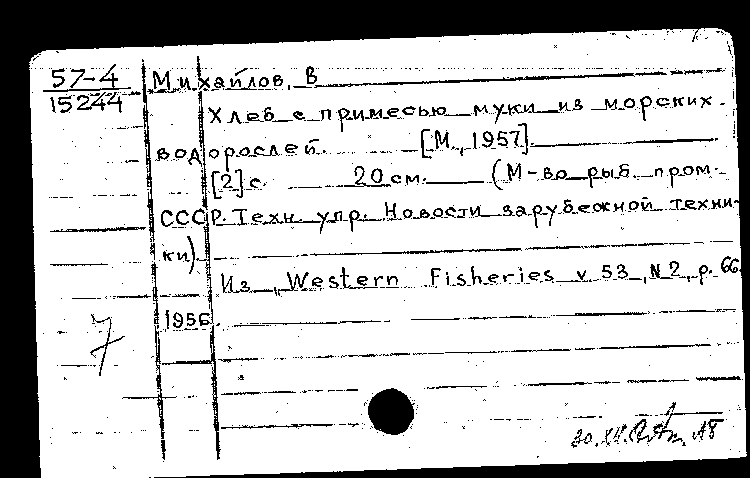 57-4
15244
Михайлов, В
Хлеб с примесью муки из морских
водорослей. [М., 1957].
[2] с. 20 см. (М-во рыб. пром-
СССР. Техн. упр. Новости зарубежной техни-
ки).
Из „Western Fisheries v 53, N 2, p. 66.
1956
7